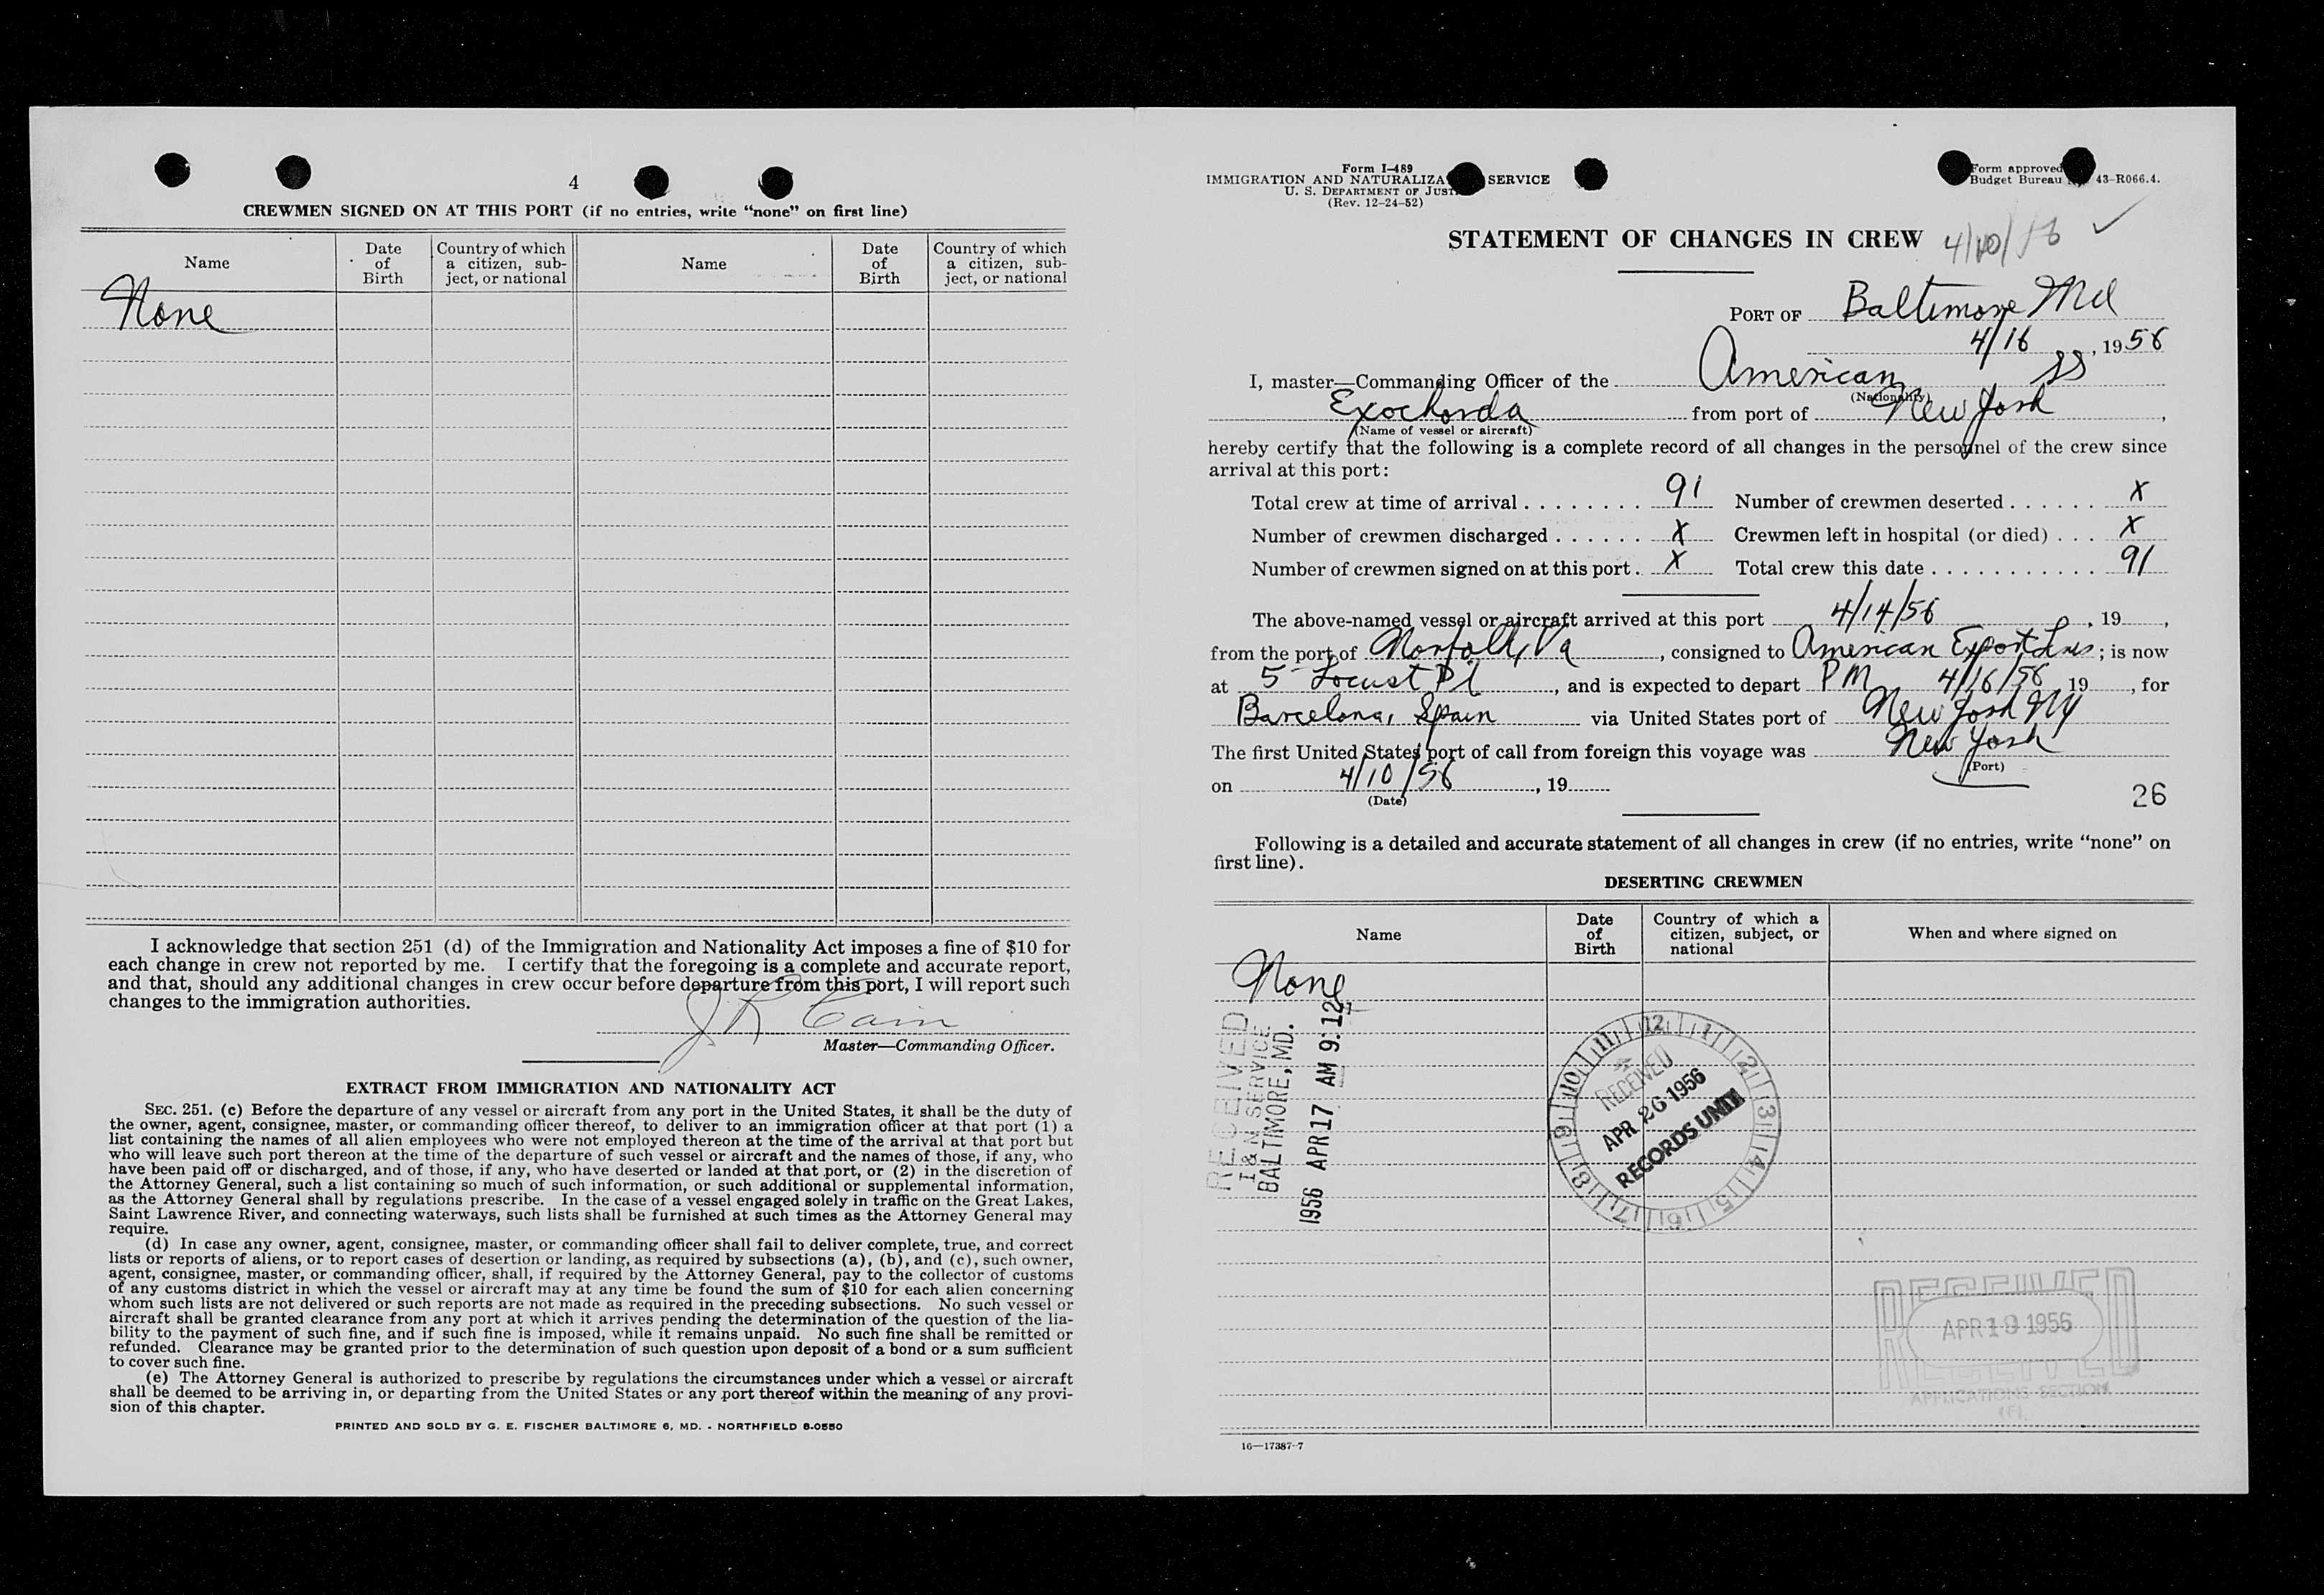 4
CREWMEN SIGNED ON AT THIS PORT (if no entries, write “none” on first line)
Name
Date of Birth
Country of which a citizen, subject, or national
Name
Date of Birth
Country of which a citizen, subject, or national
None
I acknowledge that section 251 (d) of the Immigration and Nationality Act imposes a fine of $10 for
each change in crew not reported by me. I certify that the foregoing is a complete and accurate report,
and that, should any additional changes in crew occur before departure from this port, I will report such
changes to the immigration authorities.
J R Cain
Master—Commanding Officer.
EXTRACT FROM IMMIGRATION AND NATIONALITY ACT
SEC. 251. (c) Before the departure of any vessel or aircraft from any port in the United States, it shall be the duty of
the owner, agent, consignee, master, or commanding officer thereof, to deliver to an immigration officer at that port (1) a
list containing the names of all alien employees who were not employed thereon at the time of the arrival at that port but
who will leave such port thereon at the time of the departure of such vessel or aircraft and the names of those, if any, who
have been paid off or discharged, and of those, if any, who have deserted or landed at that port, or (2) in the discretion of
the Attorney General, such a list containing so much of such information, or such additional or supplemental information,
as the Attorney General shall by regulations prescribe. In the case of a vessel engaged solely in traffic on the Great Lakes,
Saint Lawrence River, and connecting waterways, such lists shall be furnished at such times as the Attorney General may
require.
(d) In case any owner, agent, consignee, master, or commanding officer shall fail to deliver complete, true, and correct
lists or reports of aliens, or to report cases of desertion or landing, as required by subsections (a), (b), and (c), such owner,
agent, consignee, master, or commanding officer, shall, if required by the Attorney General, pay to the collector of customs
of any customs district in which the vessel or aircraft may at any time be found the sum of $10 for each alien concerning
whom such lists are not delivered or such reports are not made as required in the preceding subsections. No such vessel or
aircraft shall be granted clearance from any port at which it arrives pending the determination of the question of the lia-
bility to the payment of such fine, and if such fine is imposed, while it remains unpaid. No such fine shall be remitted or
refunded. Clearance may be granted prior to the determination of such question upon deposit of a bond or a sum sufficient
to cover such fine.
(e) The Attorney General is authorized to prescribe by regulations the circumstances under which a vessel or aircraft
shall be deemed to be arriving in, or departing from the United States or any port thereof within the meaning of any provi-
sion of this chapter.
PRINTED AND SOLD BY G. E. FISCHER BALTIMORE 6, MD. - NORTHFIELD 8-0550
Form I-489
IMMIGRATION AND NATURALIZA SERVICE
U. S. DEPARTMENT OF JUST
(Rev. 12-24-52)
Form approved
Budget Bureau 43-R066.4.
STATEMENT OF CHANGES IN CREW 4/10/56 ✓
PORT OF Baltimore Md
4/16, 1956
I, master—Commanding Officer of the American SS
(Nationality)
Exochorda from port of New York,
(Name of vessel or aircraft)
hereby certify that the following is a complete record of all changes in the personnel of the crew since
arrival at this port:
Total crew at time of arrival........ 91 Number of crewmen deserted...... X
Number of crewmen discharged...... X Crewmen left in hospital (or died)... X
Number of crewmen signed on at this port. X Total crew this date........... 91
The above-named vessel or aircraft arrived at this port 4/14/56, 19,
from the port of Norfolk, Va, consigned to American Export Lines; is now
at 5 Locust Pt, and is expected to depart PM 4/16/56 19, for
Barcelona, Spain via United States port of New York NY
The first United States port of call from foreign this voyage was New York
(Port)
on 4/10/56, 19
(Date)
26
Following is a detailed and accurate statement of all changes in crew (if no entries, write “none” on
first line).
DESERTING CREWMEN
Name
Date of Birth
Country of which a citizen, subject, or national
When and where signed on
None
RECEIVED
I & N SERVICE
BALTIMORE, MD.
1956 APR 17 AM 9:12
12 1 2 3 4 5 6 7 8 9 10 11
RECEIVED
APR 26 1956
RECORDS UNIT
RECEIVED
APR 19 1956
RECEIVED
APPLICATIONS SECTION
16—17387-7